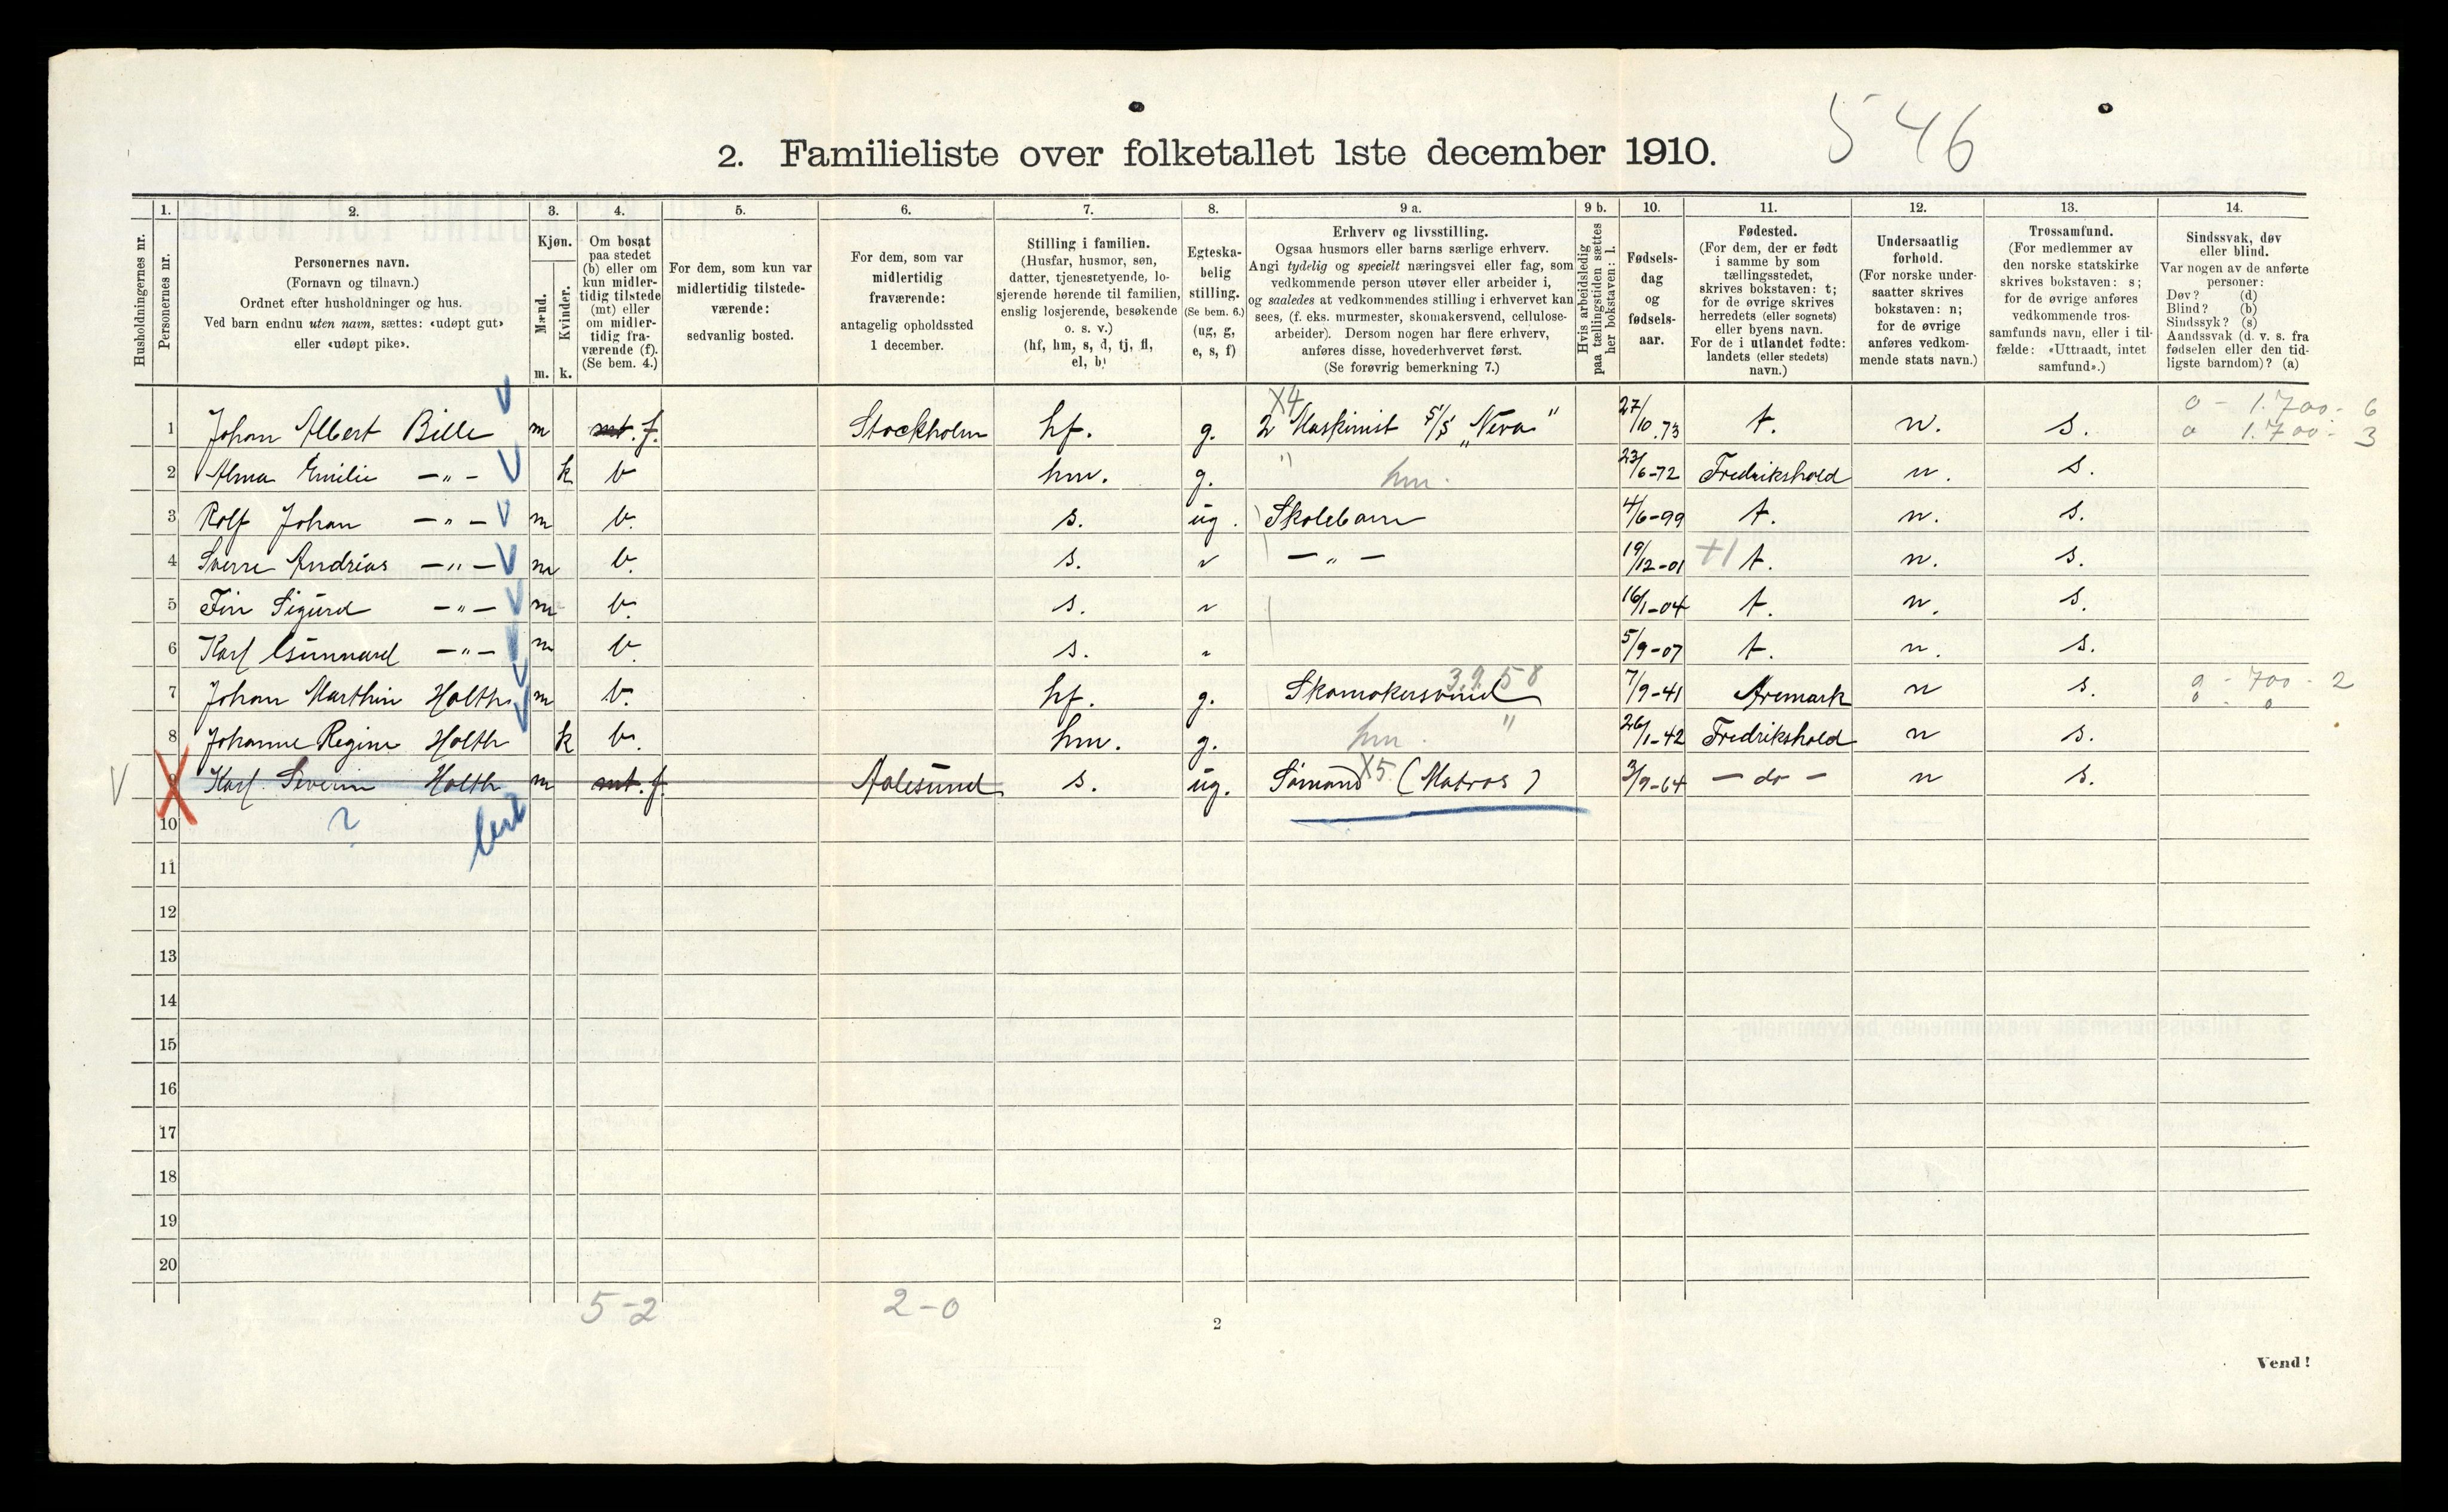 546
2. Familieliste over folketallet 1ste december 1910.
1. 2. 3. 4. 5. 6. 7. 8. 9 a. 9 b. 10. 11. 12. 13. 14.
Husholdningernes nr.
Personernes nr.
Personernes navn.
(Fornavn og tilnavn.)
Ordnet efter husholdninger og hus.
Ved barn endnu uten navn, sættes: «udøpt gut»
eller «udøpt pike».
Kjøn.
Mænd.
Kvinder.
m. k.
Om bosat
paa stedet
(b) eller om
kun midler-
tidig tilstede
(mt) eller
om midler-
tidig fra-
værende (f).
(Se bem. 4.)
For dem, som kun var
midlertidig tilstede-
værende:
sedvanlig bosted.
For dem, som var
midlertidig
fraværende:
antagelig opholdssted
1 december.
Stilling i familien.
(Husfar, husmor, søn,
datter, tjenestetyende, lo-
sjerende hørende til familien,
enslig losjerende, besøkende
o. s. v.)
(hf, hm, s, d, tj, fl,
el, b)
Egteska-
belig
stilling.
(Se bem. 6.)
(ug, g,
e, s, f)
Erhverv og livsstilling.
Ogsaa husmors eller barns særlige erhverv.
Angi tydelig og specielt næringsvei eller fag, som
vedkommende person utøver eller arbeider i,
og saaledes at vedkommendes stilling i erhvervet kan
sees, (f. eks. murmester, skomakersvend, cellulose-
arbeider). Dersom nogen har flere erhverv,
anføres disse, hovederhvervet først.
(Se forøvrig bemerkning 7.)
Hvis arbeidsledig
paa tællingstiden sættes
her bokstaven: l.
Fødsels-
dag
og
fødsels-
aar.
Fødested.
(For dem, der er født
i samme by som
tællingsstedet,
skrives bokstaven: t;
for de øvrige skrives
herredets (eller sognets)
eller byens navn.
For de i utlandet fødte:
landets (eller stedets)
navn.)
Undersaatlig
forhold.
(For norske under-
saatter skrives
bokstaven: n;
for de øvrige
anføres vedkom-
mende stats navn.)
Trossamfund.
(For medlemmer av
den norske statskirke
skrives bokstaven: s;
for de øvrige anføres
vedkommende tros-
samfunds navn, eller i til-
fælde: «Uttraadt, intet
samfund».)
Sindssvak, døv
eller blind.
Var nogen av de anførte
personer:
Døv? (d)
Blind? (b)
Sindssyk? (s)
Aandssvak (d. v. s. fra
fødselen eller den tid-
ligste barndom)? (a)
1 Johan Albert Bille m mt. f. Stockholm hf. g. X4 2 Maskinist S/S „Neva" 27/10.73 t. n. s. 0 - 1.700 - 6
0 1.700 - 3
2 Alma Emilie —"— k b hm. g. " hm. 23/6-72 Fredrikshald n. s.
3 Rolf Johan —"— m b. s. ug. Skolebarn 4/6-99 t. n. s.
4 Sverre Andreas —"— m b. s. " —"— 19/12-01 +1 t. n. s.
5 Fin Sigurd —"— m b. s. " 16/1-04 t. n. s.
6 Karl Gunnard —"— m b. s. " 5/9-07 t. n. s.
7 Johan Marthin Holth m b. hf. g. Skomakersvend 3.9.58 7/9-41 Aremark n s. 0 - 700 - 2
0 0
8 Johanne Regine Holth k b. hm. g. hm. " 26/1-42 Fredrikshald n s.
9 Karl Severin Holth m mt. f. Aalesund s. ug. Sømand X5. (Matros) 3/9-64 — do — n s.
10 ?
11
12
13
14
15
16
17
18
19
20
5-2 2-0
2
Vend!